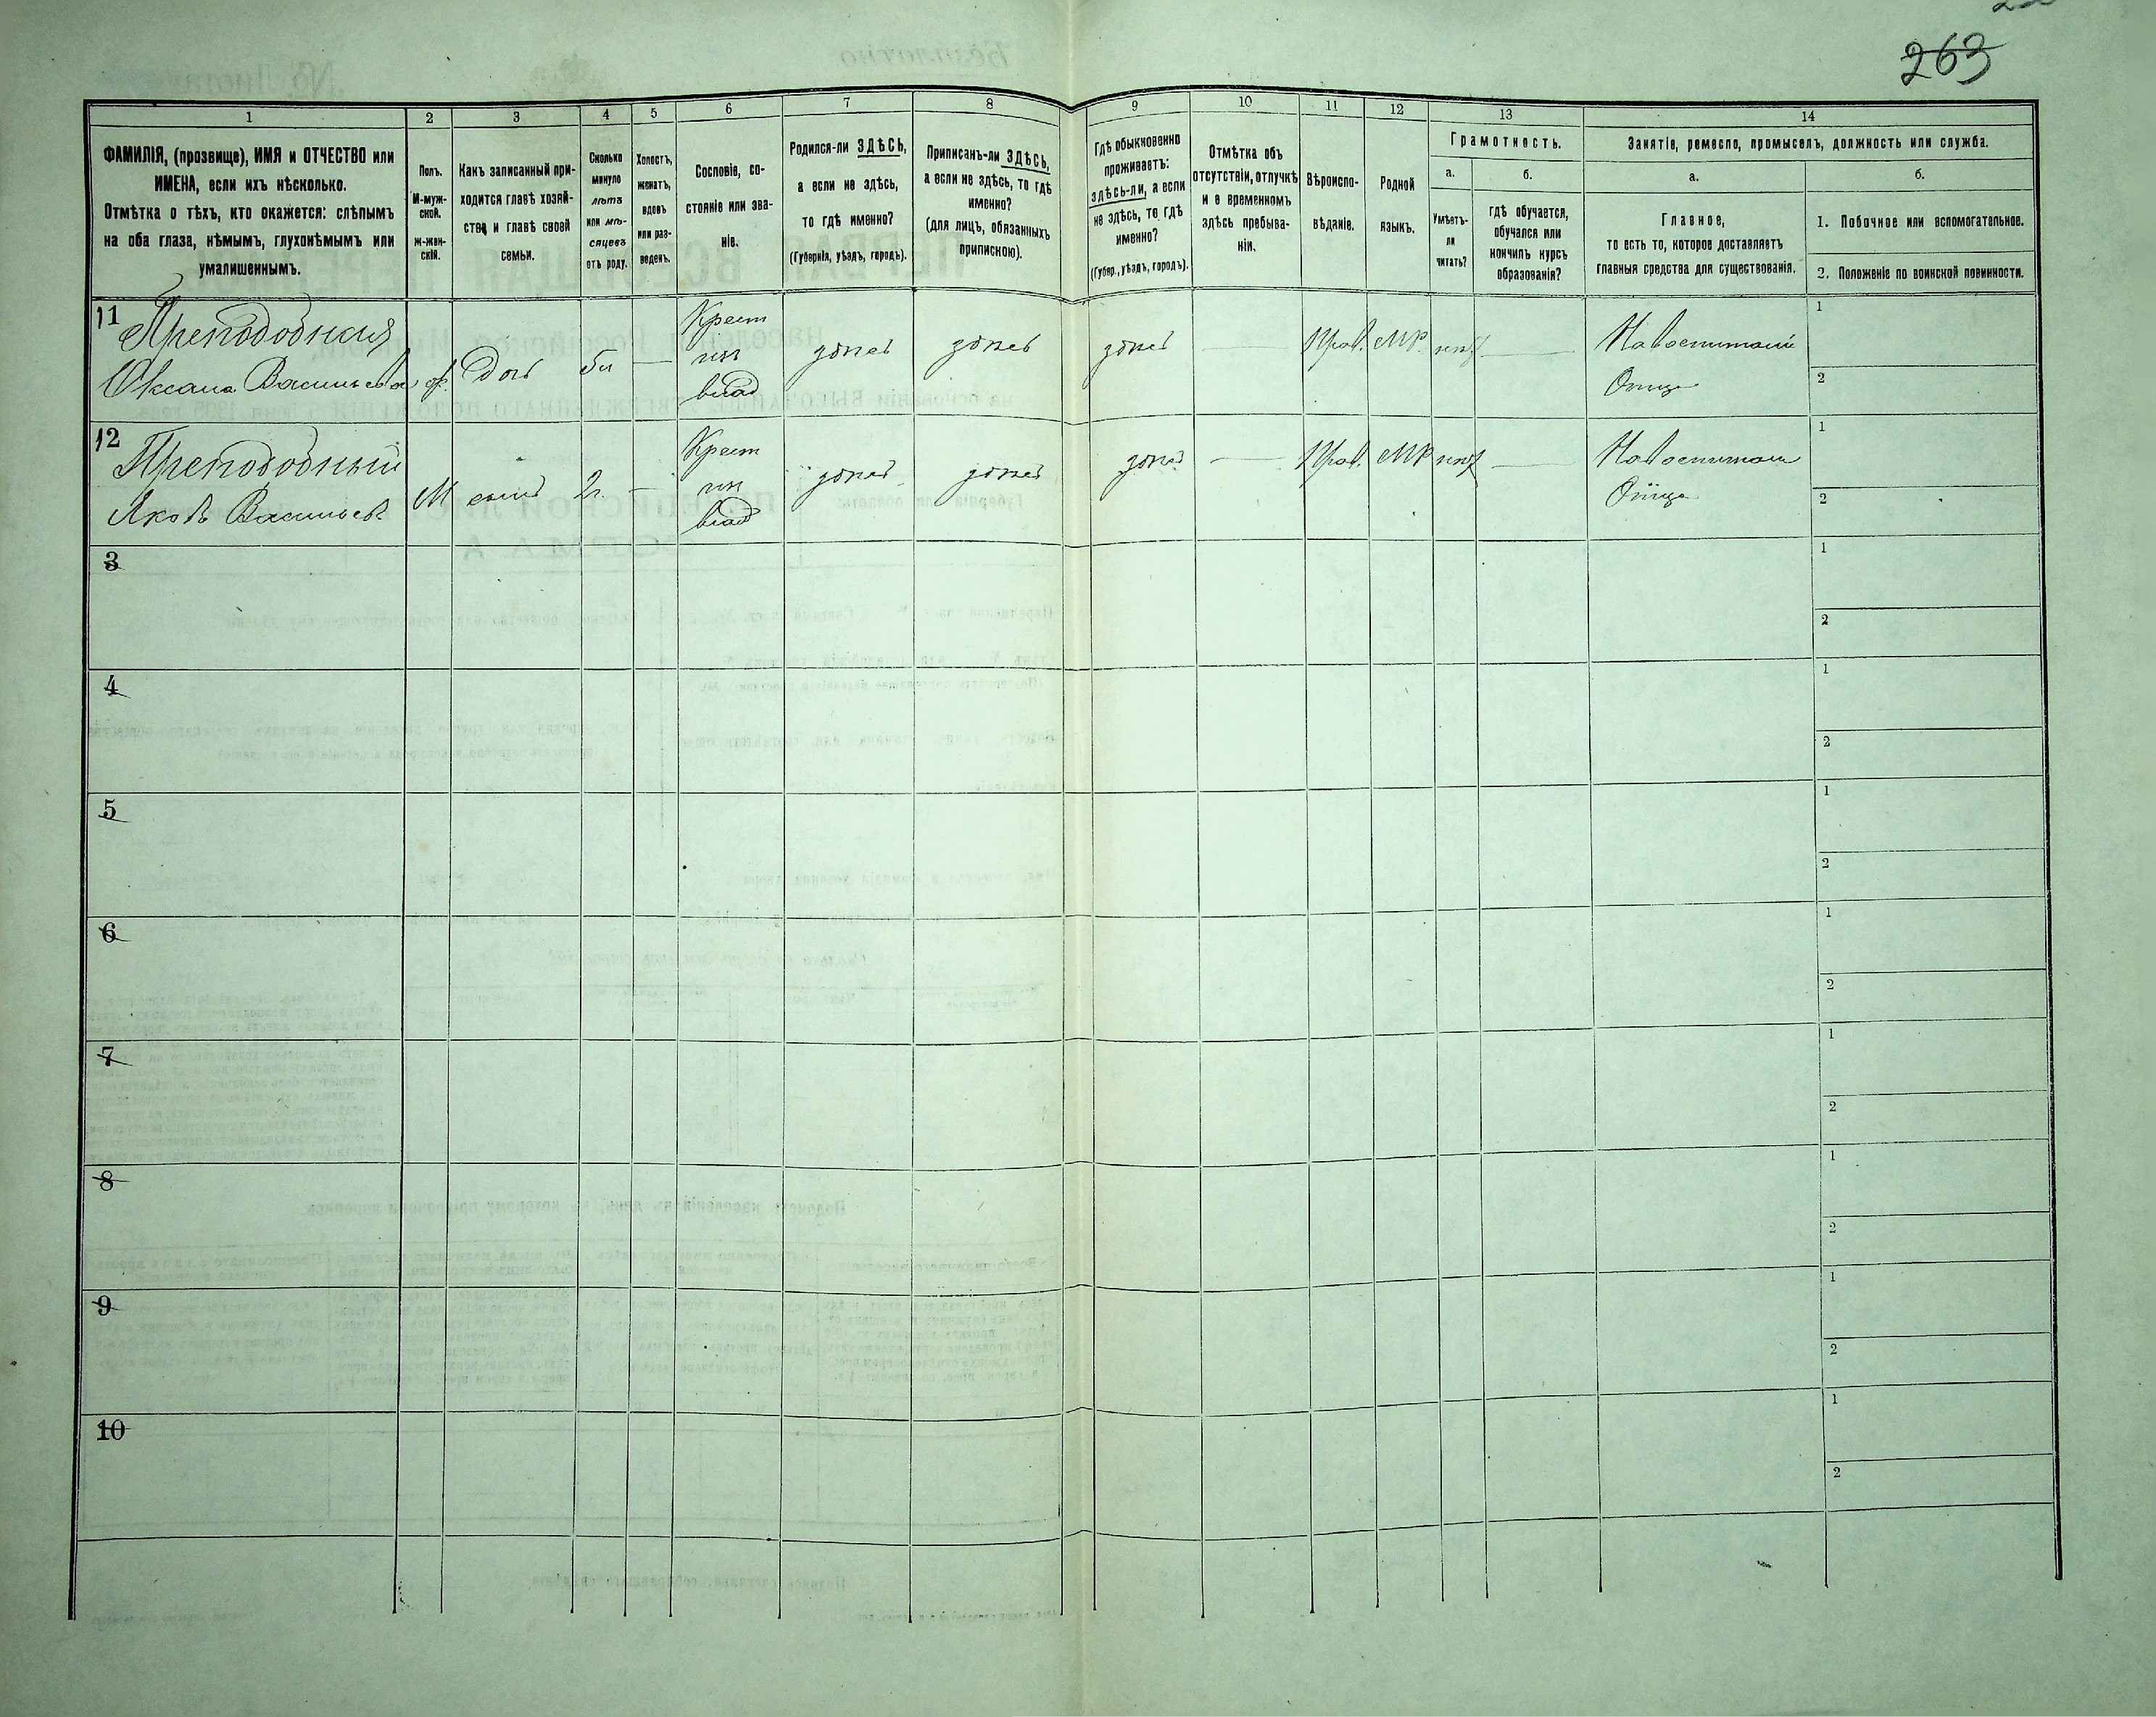 263
1
2
3
4
5
6
7
8
9
10
11
12
13
14
ФАМИЛІЯ, (прозвище), ИМЯ и ОТЧЕСТВО или
ИМЕНА, если ихъ нѣсколько.
Отмѣтка о тѣхъ, кто окажется: слѣпымъ
на оба глаза, нѣмымъ, глухонѣмымъ или
умалишеннымъ.
Полъ.
М-муж-
ской.
Ж-жен-
скій.
Какъ записанный при-
ходится главѣ хозяй-
ства и главѣ своей
семьи.
Сколько
минуло
лѣтъ
или мѣ-
сяцевъ
отъ роду.
Холостъ,
женатъ,
вдовъ
или раз-
веденъ.
Сословіе, со-
стояніе или зва-
ніе.
Родился-ли ЗДѢСЬ,
а если не здѣсь,
то гдѣ именно?
(Губернія, уѣздъ, городъ).
Приписанъ-ли ЗДѢСЬ,
а если не здѣсь, то гдѣ
именно?
(для лицъ, обязанныхъ
припискою).
Гдѣ обыкновенно
проживаетъ:
здѣсь-ли, а если
не здѣсь, то гдѣ
именно?
(Губер., уѣздъ, городъ).
Отмѣтка объ
отсутствіи, отлучкѣ
и о временномъ
здѣсь пребыва-
ніи.
Вѣроиспо-
вѣданіе.
Родной
языкъ.
Грамотность.
а.
Умѣетъ-
ли
читать?
б.
гдѣ обучается,
обучался или
кончилъ курсъ
образованія?
Занятіе, ремесло, промыселъ, должность или служба.
а.
Главное,
то есть то, которое доставляетъ
главныя средства для существованія.
б.
1. Побочное или вспомогательное.
2. Положеніе по воинской повинности.
11
Преподобная
Оксана Васильева
ж.
дочь
5 л
—
Крест
изъ
влад
здѣсь
здѣсь
здѣсь
—
Прав.
МР.
нѣт
—
На воспитаніи
Отца
1
2
12
Преподобный
Яковъ Васильевъ
М
сынъ
2 г.
—
Крест
изъ
влад
здѣсь
здѣсь
здѣсь
—
Прав.
МР
нѣт
—
На воспитаніи
Отца
1
2
3
1
2
4
1
2
5
1
2
6
1
2
7
1
2
8
1
2
9
1
2
10
1
2